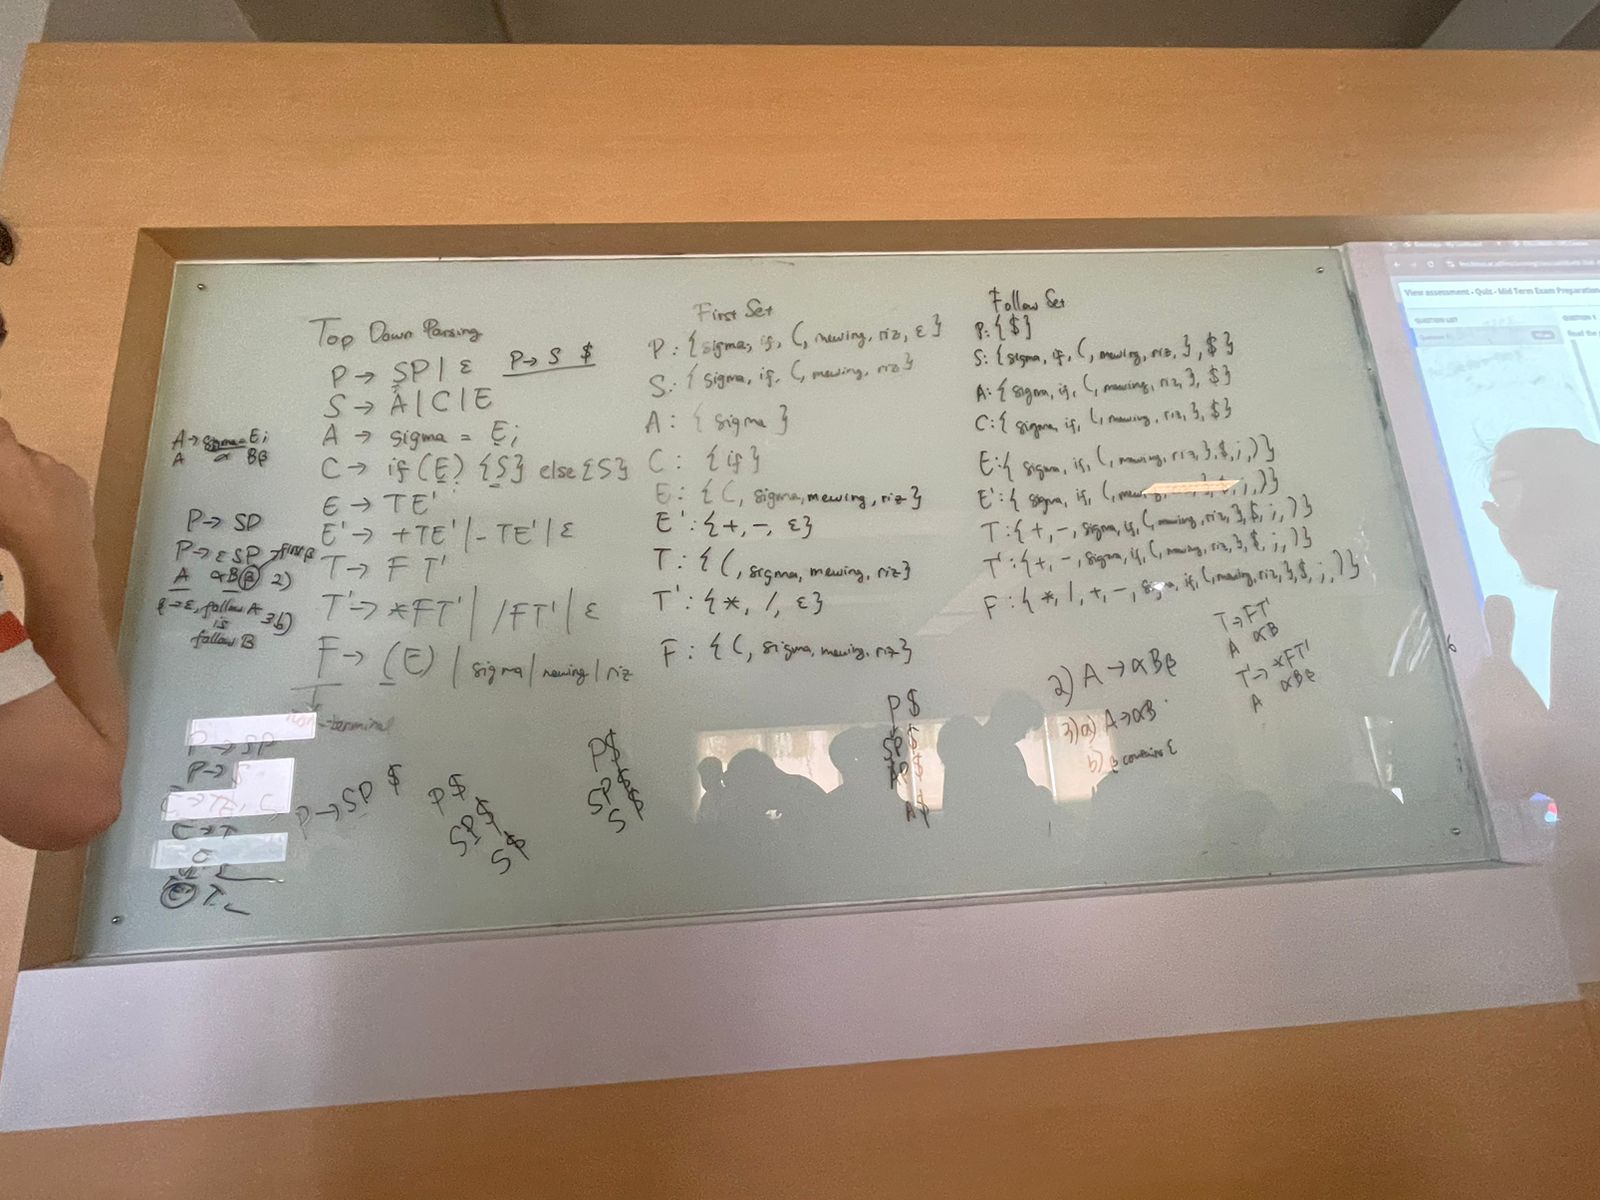 Top Down Parsing
P → SP | ε   P → S $
S → A | C | E
A → sigma = E;
C → if (E) {S} else {S}
E → TE'
E' → +TE' | -TE' | ε
T → F T'
T' → *FT' | /FT' | ε
F → (E) | sigma | mewing | riz
non-terminal
A → sigma = E;
A α Bβ
P → SP
P → εSP → first β
A αBβ 2)
β → ε, follow A 3b)
is
follow B
P → SP
P → S
P → SP $
P $
SP $
S $
P $
SP $
S $
First Set
P: {sigma, if, (, mewing, riz, ε}
S: {sigma, if, (, mewing, riz}
A: {sigma}
C: {if}
E: {(, sigma, mewing, riz}
E': {+, -, ε}
T: {(, sigma, mewing, riz}
T': {*, /, ε}
F: {(, sigma, mewing, riz}
P $
SP $
AP $
A $
Follow Set
P: {$}
S: {sigma, if, (, mewing, riz, }, $}
A: {sigma, if, (, mewing, riz, }, $}
C: {sigma, if, (, mewing, riz, }, $}
E: {sigma, if, (, mewing, riz, }, $, ;, )}
E': {sigma, if, (, $, ;, )}
T: {+, -, sigma, if, (, mewing, riz, }, $, ;, )}
T': {+, -, sigma, if, (, mewing, riz, }, $, ;, )}
F: {*, /, +, -, sigma, if, (, mewing, riz, }, $, ;, )}
2) A → αBβ
3) a) A → αB
b) β contains ε
T → FT'
A αB
T' → *FT'
A αBβ
View assessment - Quiz - Mid Term Exam Preparation
QUESTION LIST
QUESTION 1
Read the